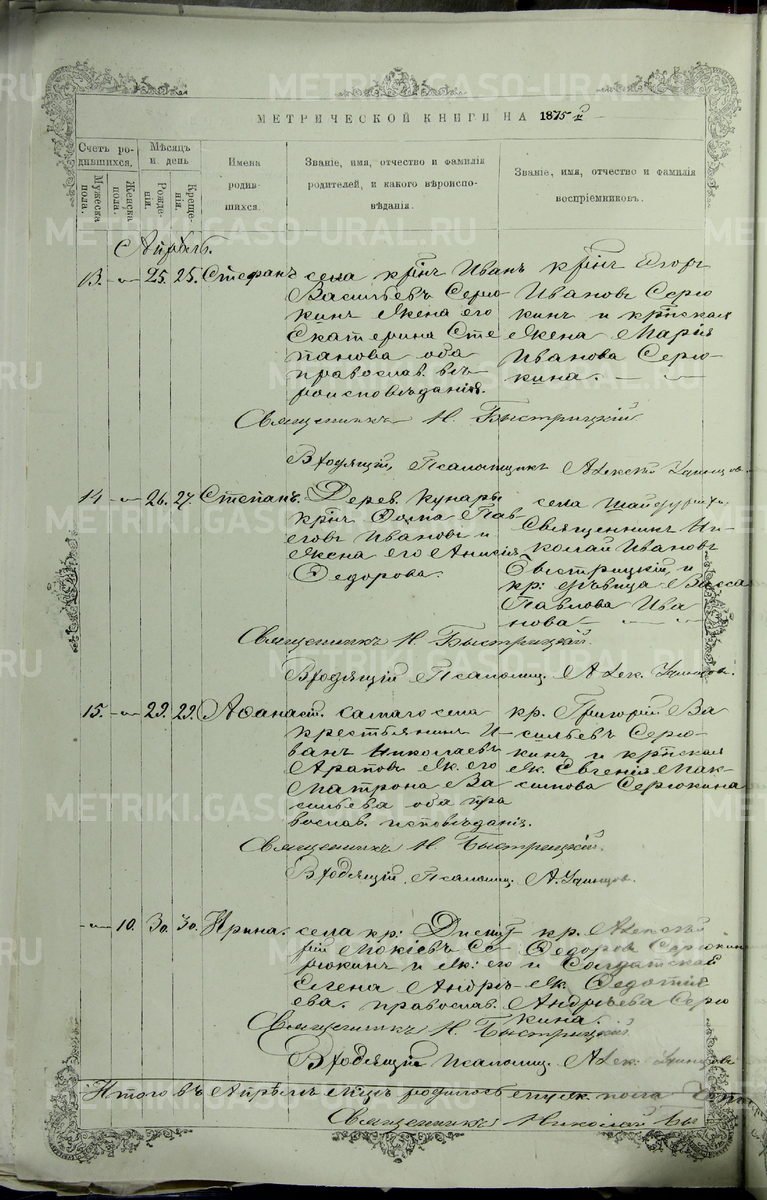 METRIKI.GASO-URAL.RU
МЕТРИЧЕСКОЙ КНИГИ НА 1875 й
Счетъ родившихся.
Мужеска пола.
Женска пола.
Мѣсяцъ и день
Рожденія.
Крещенія.
Имена родившихся.
Званіе, имя, отчество и фамилія родителей, и какого вѣроисповѣданія.
Званіе, имя, отчество и фамилія воспріемниковъ.
Апрѣль.
13. 25. 25. Стефанъ
села крнъ Иванъ
Васильевъ Серю
кинъ жена его
Екатерина Сте
панова оба
православ. вѣ
роисповѣданія.
крнъ Егоръ
Ивановъ Серю
кинъ и крпская
жена Марія
Иванова Серю-
кина.
Священникъ Н. Быстрицкій
Входящій Псаломщикъ Алексѣй
14 26. 27. Степанъ.
Дерев. Кунары
крнъ Ѳома Пав
ловъ Ивановъ и
жена его Анисія
Ѳедорова.
села
Священникъ Ни-
колай Ивановъ
Быстрицкій и
кр: дѣвица Васса
Павлова Ива
нова
Священникъ Н. Быстрицкій.
Входящій Псаломщ. Алек.
15. 29. 29. Аѳанасій.
самаго села
крестьянинъ И-
ванъ Николаевъ
Араповъ ж. его
Матрона Ва
сильева оба пра
вослав. исповѣданія.
кр. Григорій Ва
сильевъ Серю-
кинъ и крпская
ж. Евгенія Мак-
симова Серюкина
Священникъ Н. Быстрицкій.
Входящій Псаломщ. А.
10. 30. 30. Ирина.
села кр: Димит
рій Мокіевъ Се-
рюкинъ и ж: его
Елена Андрѣ-
ева. православ.
кр. Алексѣй
Ѳедоровъ Серюкин
и Солдатская
ж. Ѳедотія
Андрѣева Серю
кина.
Священникъ Н. Быстрицкій
Входящій Псаломщ. Алек.
Итого въ Апрѣлѣ мцѣ родилось муж. пола
Священникъ Николай Бы